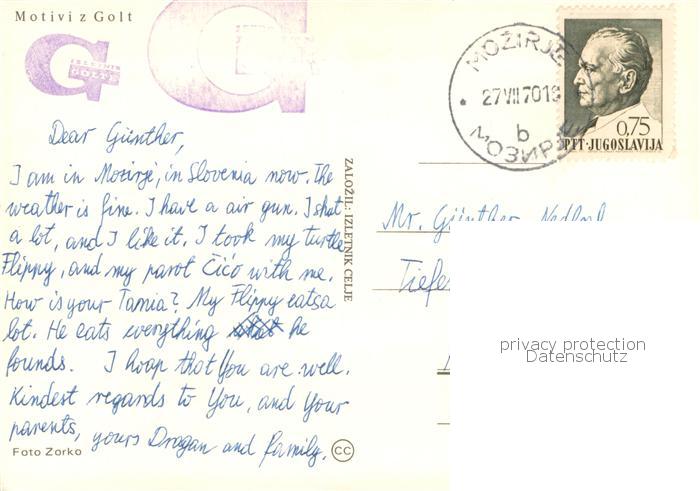 Motivi z Golt
IZLETNIK
GOLTE
MOZIRJE
27 VII 70 18
b
МОЗИРЈЕ
0,75
PTT-JUGOSLAVIJA
Dear Günther,
I am in Mozirje, in Slovenia now. The
weather is fine. I have a air gun. I shot
a lot, and I like it. I took my turtle
Flippy, and my parot Čićo with me.
How is your Tamia? My Flippy eats a
lot. He eats everything he
founds. I hoap that You are well.
Kindest regards to You, and Your
parents, yours Dragan and family.
Foto Zorko
CC
ZALOŽIL: IZLETNIK CELJE
Mr. Günther
Tiefe
privacy protection
Datenschutz